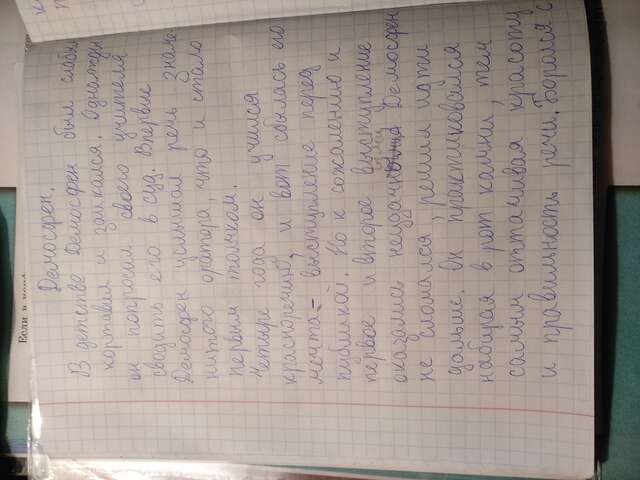 Демосфен.
В детстве Демосфен был слабым
картавил и заикался. Однажды
он попросил своего учителя
сводить его в суд. Впервые
Демосфен услышал речь знаме
нитого оратора, что и стало
первым толчком.
Четыре года он учился
красноречию, и вот сбылась его
мечта – выступление перед
публикой. Но к сожалению и
первое и второе выступление
оказались неудачными Демосфен
не сломался, решил идти
дальше. Он практиковался
набирая в рот камни, тем
самым оттачивая красоту
и правильность речи. Боролся с
Если в